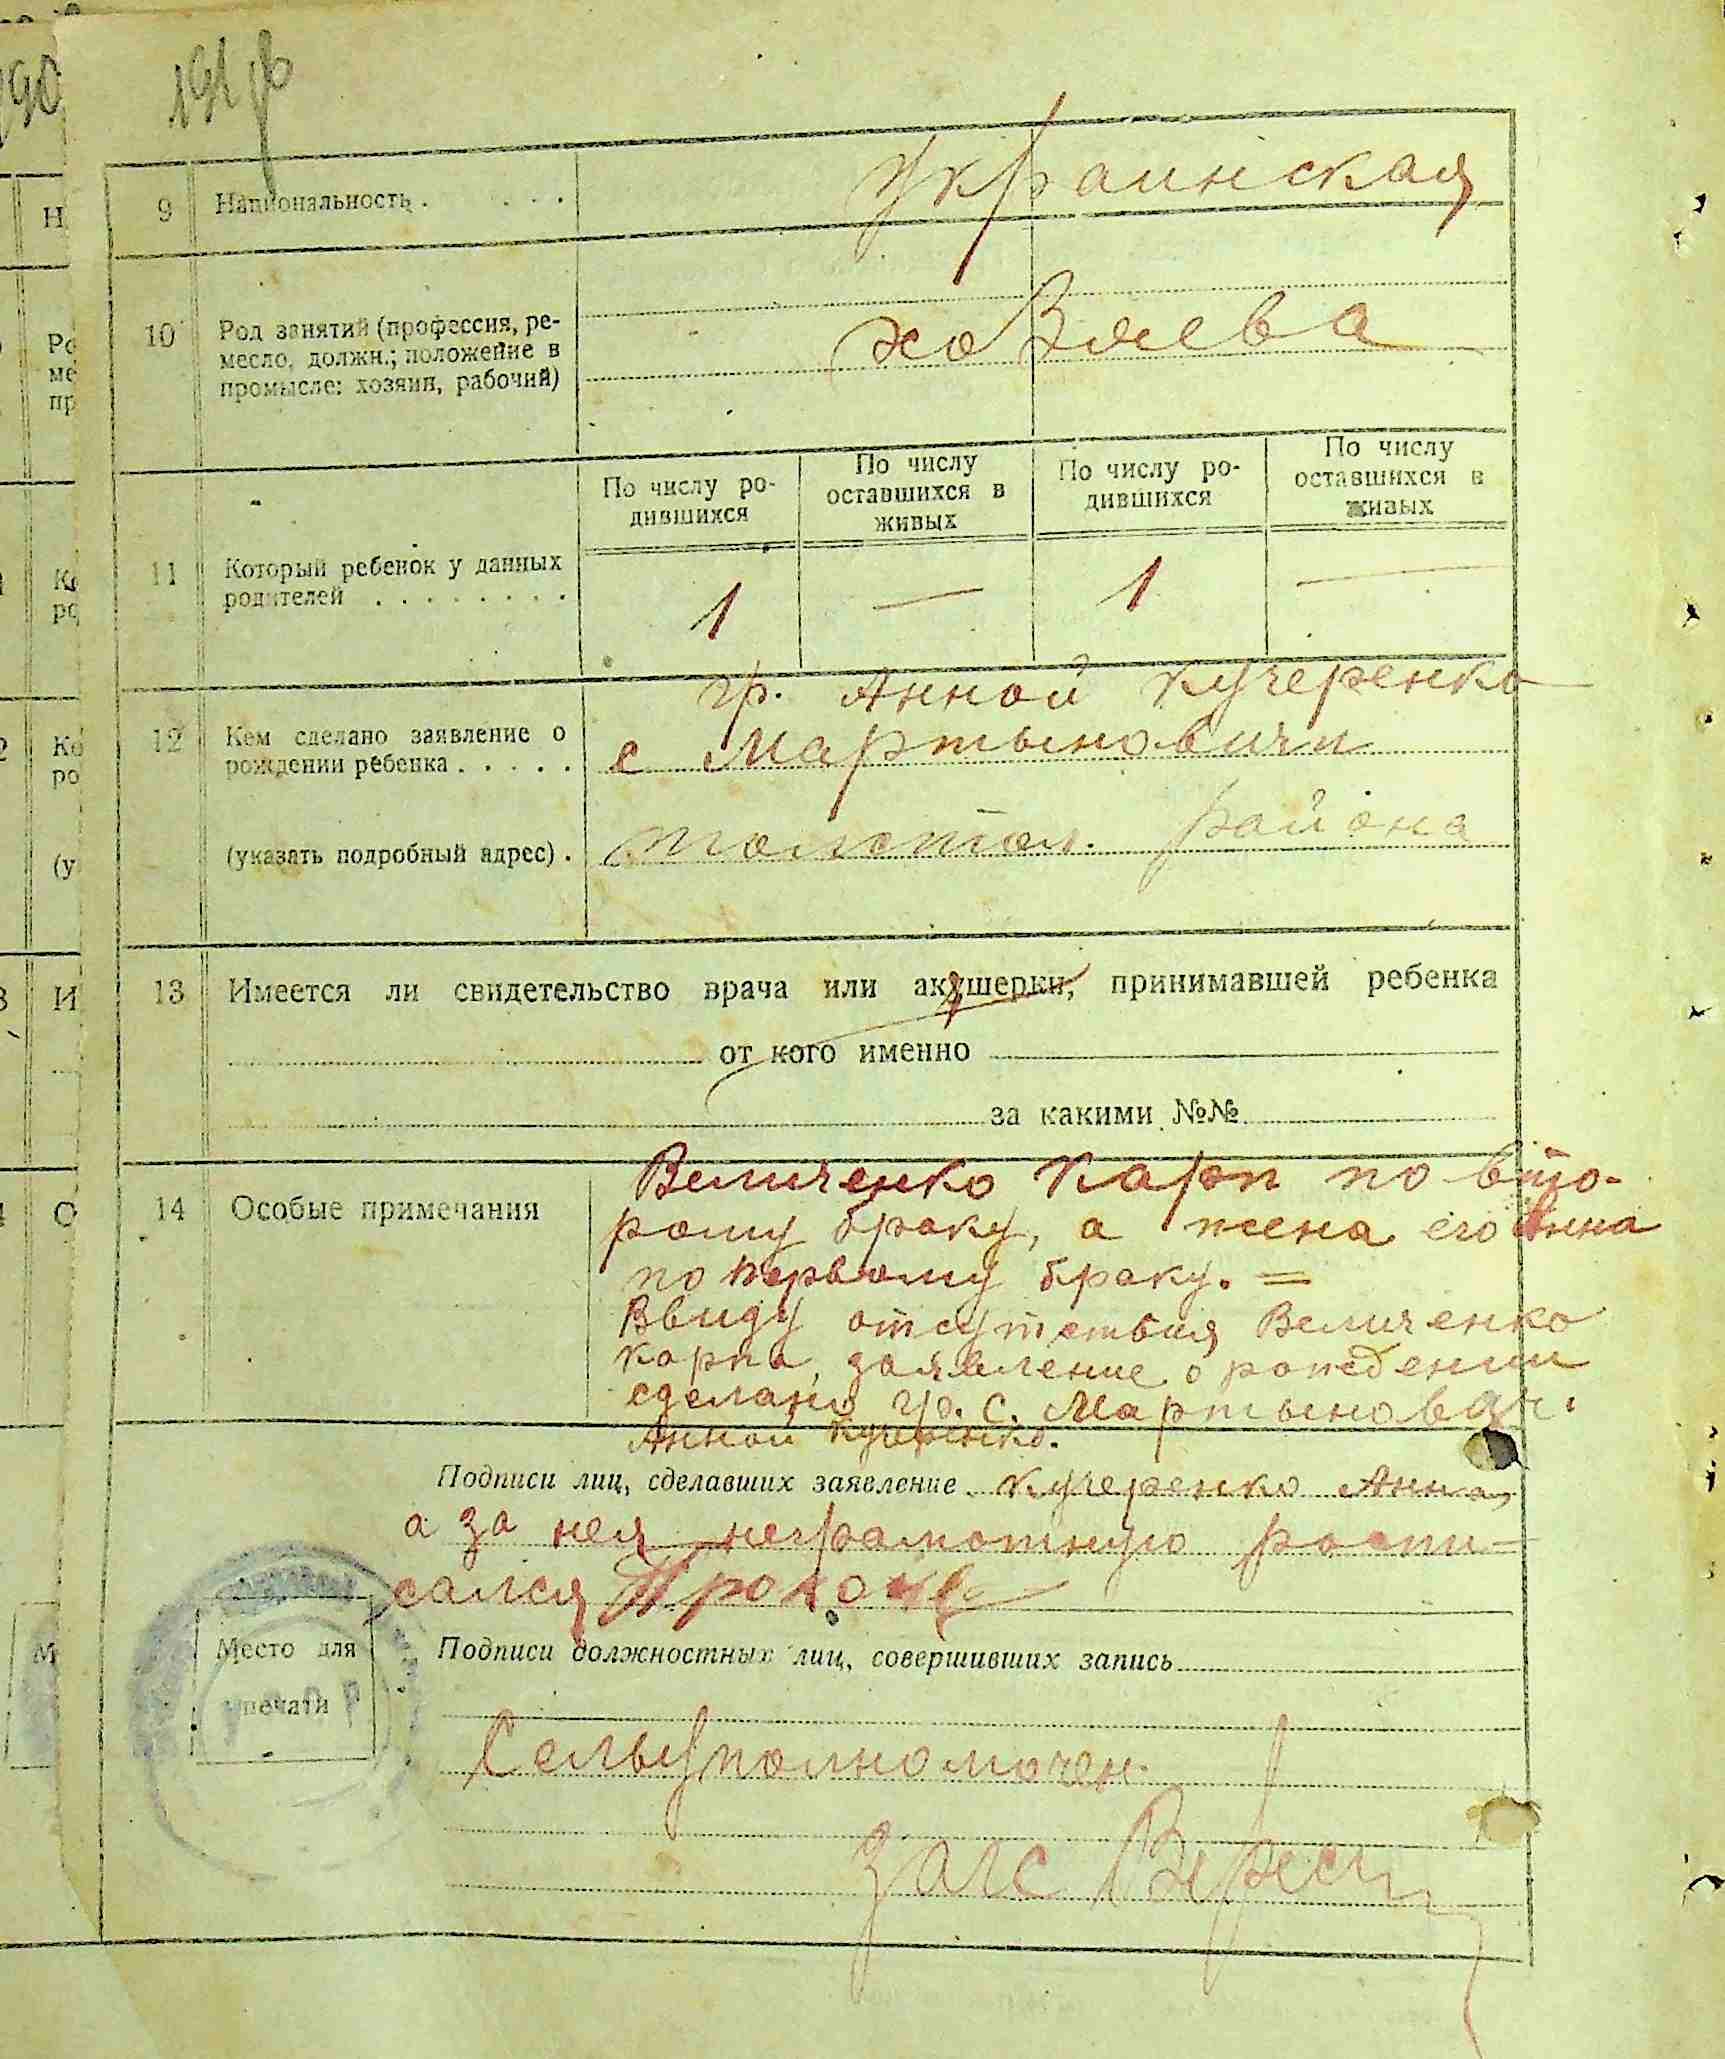 191 р
9 Национальность . . . . Украинская
10 Род занятий (профессия, ре-
месло, должн.; положение в
промысле: хозяин, рабочий)
хозяева
По числу ро-
дившихся
По числу
оставшихся в
живых
По числу ро-
дившихся
По числу
оставшихся в
живых
11 Который ребенок у данных
родителей . . . . . . . .
1 — 1 —
гр. Анной Кучеренко
12 Кем сделано заявление о
рождении ребенка . . . . .
с Мартыновичи
(указать подробный адрес) . района
13 Имеется ли свидетельство врача или акушерки, принимавшей ребенка
от кого именно
за какими №№
14 Особые примечания
Величенко Карп по вто-
рому браку, а жена его Анна
по первому браку. =
Ввиду отсутствия Величенко
Карпа, заявление о рождении
сделано гр. с. Мартынович.
Анной Кучеренко.
Подписи лиц, сделавших заявление Кучеренко Анна,
а за нея неграмотную распи-
сался
Место для
печати
Подписи должностных лиц, совершивших запись
Сельуполномочен.
загс